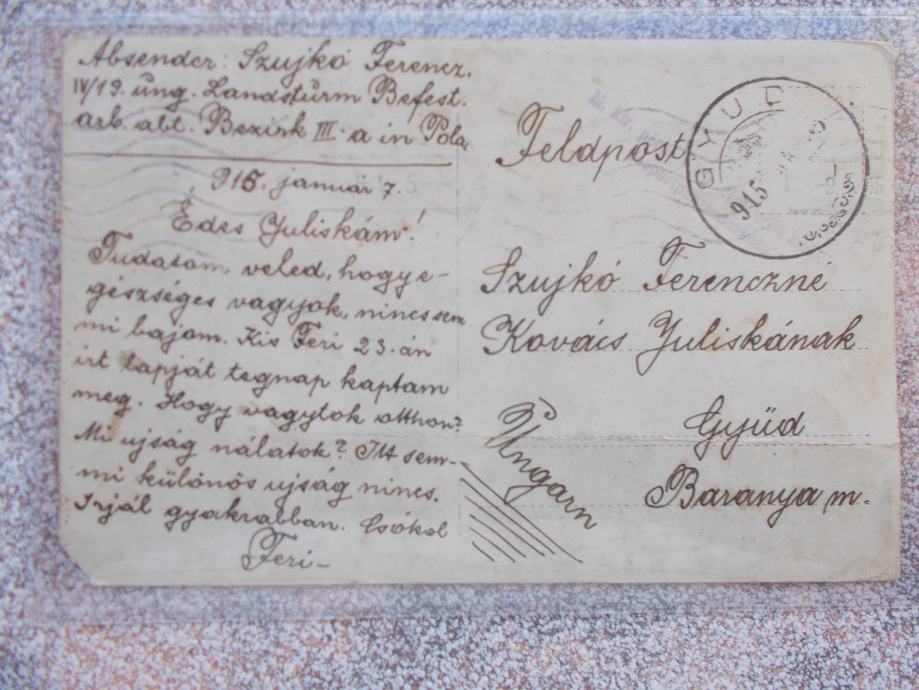 Absender: Szujkó Ferencz.
IV/19. ung. Landsturm Befest.
arb. abt. Bezirk III. a in Pola
915. január 7.
Édes Juliskám!
Tudatom veled, hogy e-
gészséges vagyok, nincs sem
mi bajom. Kis Feri 23.-án
irt lapját tegnap kaptam
meg. Hogy vagytok otthon?
Mi ujság nálatok? Itt sem-
mi különös ujság nincs.
Irjál gyakrabban. Csókol
Feri-
Feldpost
GYUD
915
Szujkó Ferenczné
Kovács Juliskának
Gyüd
Baranya m.
Ungarn